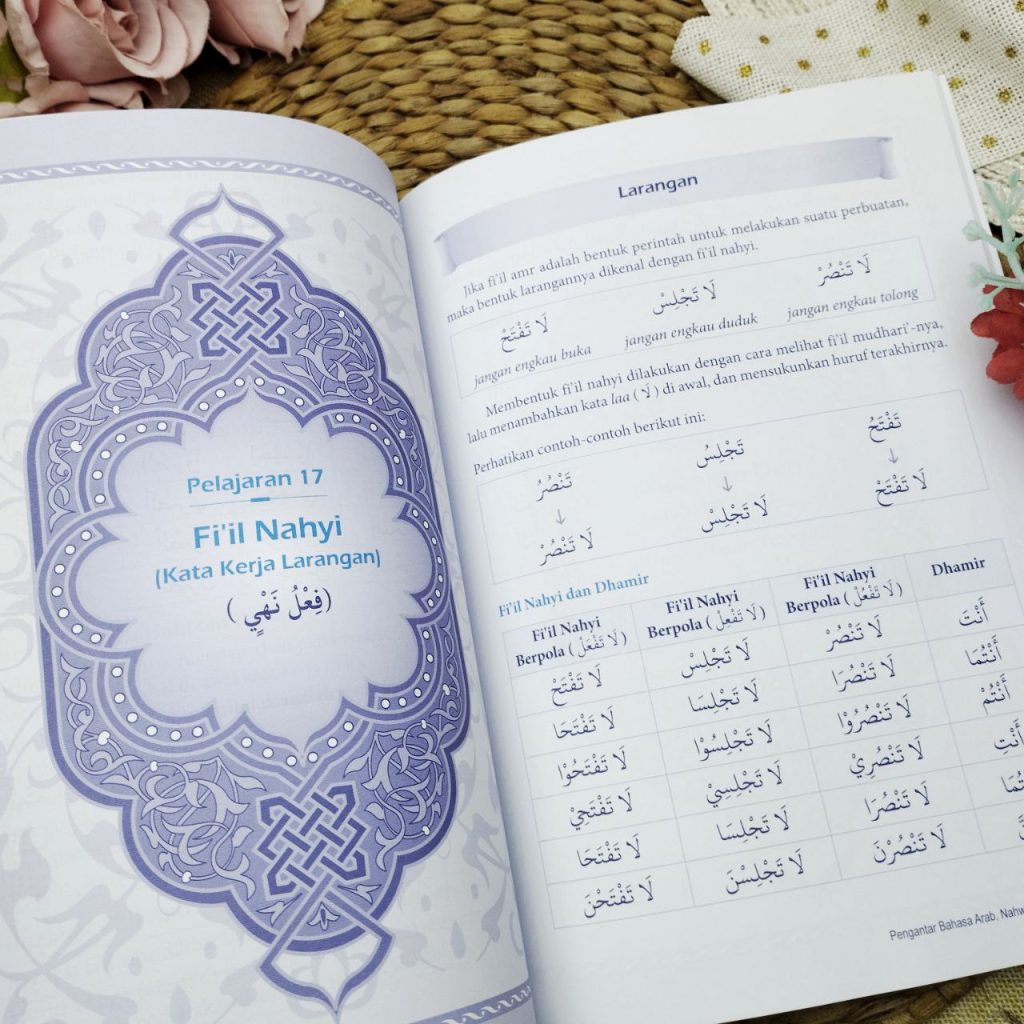 Pelajaran 17
Fi'il Nahyi
(Kata Kerja Larangan)
(فِعْلُ نَهْيٍ )
Larangan
Jika fi'il amr adalah bentuk perintah untuk melakukan suatu perbuatan,
maka bentuk larangannya dikenal dengan fi'il nahyi.
لَا تَفْتَحْ لَا تَجْلِسْ لَا تَنْصُرْ
jangan engkau buka jangan engkau duduk jangan engkau tolong
Membentuk fi'il nahyi dilakukan dengan cara melihat fi'il mudhari'-nya,
lalu menambahkan kata laa ( لَا ) di awal, dan mensukunkan huruf terakhirnya.
Perhatikan contoh-contoh berikut ini:
تَنْصُرُ تَجْلِسُ تَفْتَحُ
↓ ↓ ↓
لَا تَنْصُرْ لَا تَجْلِسْ لَا تَفْتَحْ
Fi'il Nahyi dan Dhamir
Fi'il Nahyi Fi'il Nahyi Fi'il Nahyi Dhamir
Berpola ( لَا تَفْعَلْ ) Berpola ( لَا تَفْعِلْ ) Berpola ( لَا تَفْعُلْ )
لَا تَفْتَحْ لَا تَجْلِسْ لَا تَنْصُرْ أَنْتَ
لَا تَفْتَحَا لَا تَجْلِسَا لَا تَنْصُرَا أَنْتُمَا
لَا تَفْتَحُوْا لَا تَجْلِسُوْا لَا تَنْصُرُوْا أَنْتُمْ
لَا تَفْتَحِيْ لَا تَجْلِسِيْ لَا تَنْصُرِيْ أَنْتِ
لَا تَفْتَحَا لَا تَجْلِسَا لَا تَنْصُرَا
لَا تَفْتَحْنَ لَا تَجْلِسْنَ لَا تَنْصُرْنَ
Pengantar Bahasa Arab, Nahw